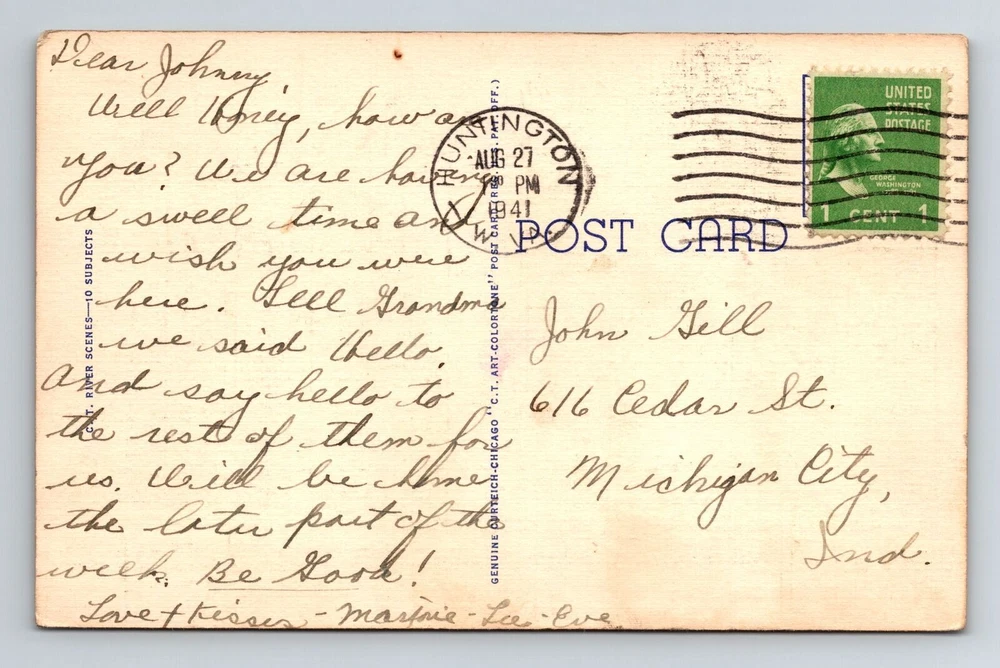 Dear Johnny,
Well Honey, how are
you? We are having
a swell time and
wish you were
here. Tell Grandma
we said Hello.
And say hello to
the rest of them for
us. Will be home
the later part of the
week. Be Good!
Love + Kisses - Marjorie - Lee - Eve
C. T. RIVER SCENES—10 SUBJECTS
GENUINE CURTEICH-CHICAGO "C. T. ART-COLORTONE" POST CARD (REG. U.S. PAT. OFF.)
HUNTINGTON
AUG 27
PM
1941
W. VA.
POST CARD
UNITED
STATES
POSTAGE
GEORGE
WASHINGTON
1 CENT 1
John Gill
616 Cedar St.
Michigan City,
Ind.